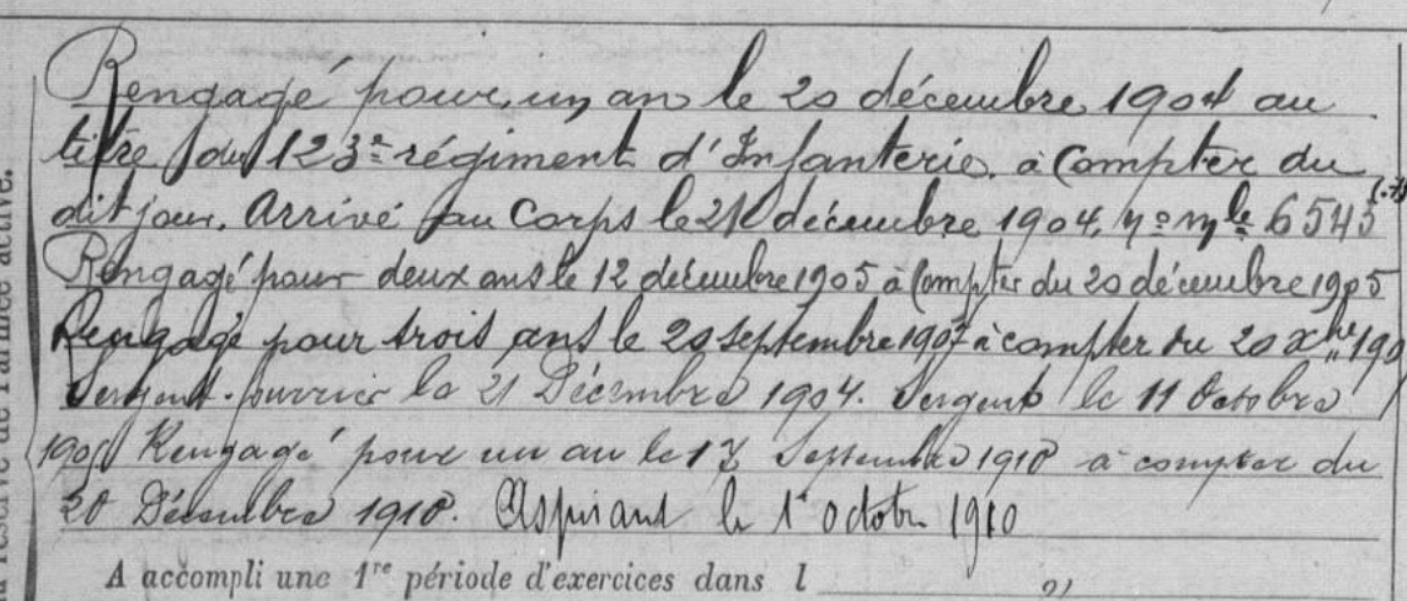 Rengagé pour un an le 20 décembre 1904 au
titre du 123e régiment d'Infanterie à Compter du
dit jour. Arrivé au Corps le 21 décembre 1904, no mle 6543
Rengagé pour deux ans le 12 décembre 1905 à Compter du 20 décembre 1905
Rengagé pour trois ans le 20 septembre 1907 à compter du 20 Xbre 190
Sergent-fourrier le 21 Décembre 1904. Sergent le 11 Octobre
Rengagé pour un an le 17 Septembre 1910 à compter du
20 Décembre 1910. Aspirant le 1r octobre 1910
A accompli une 1re période d'exercices dans l
la réserve de l'armée active.